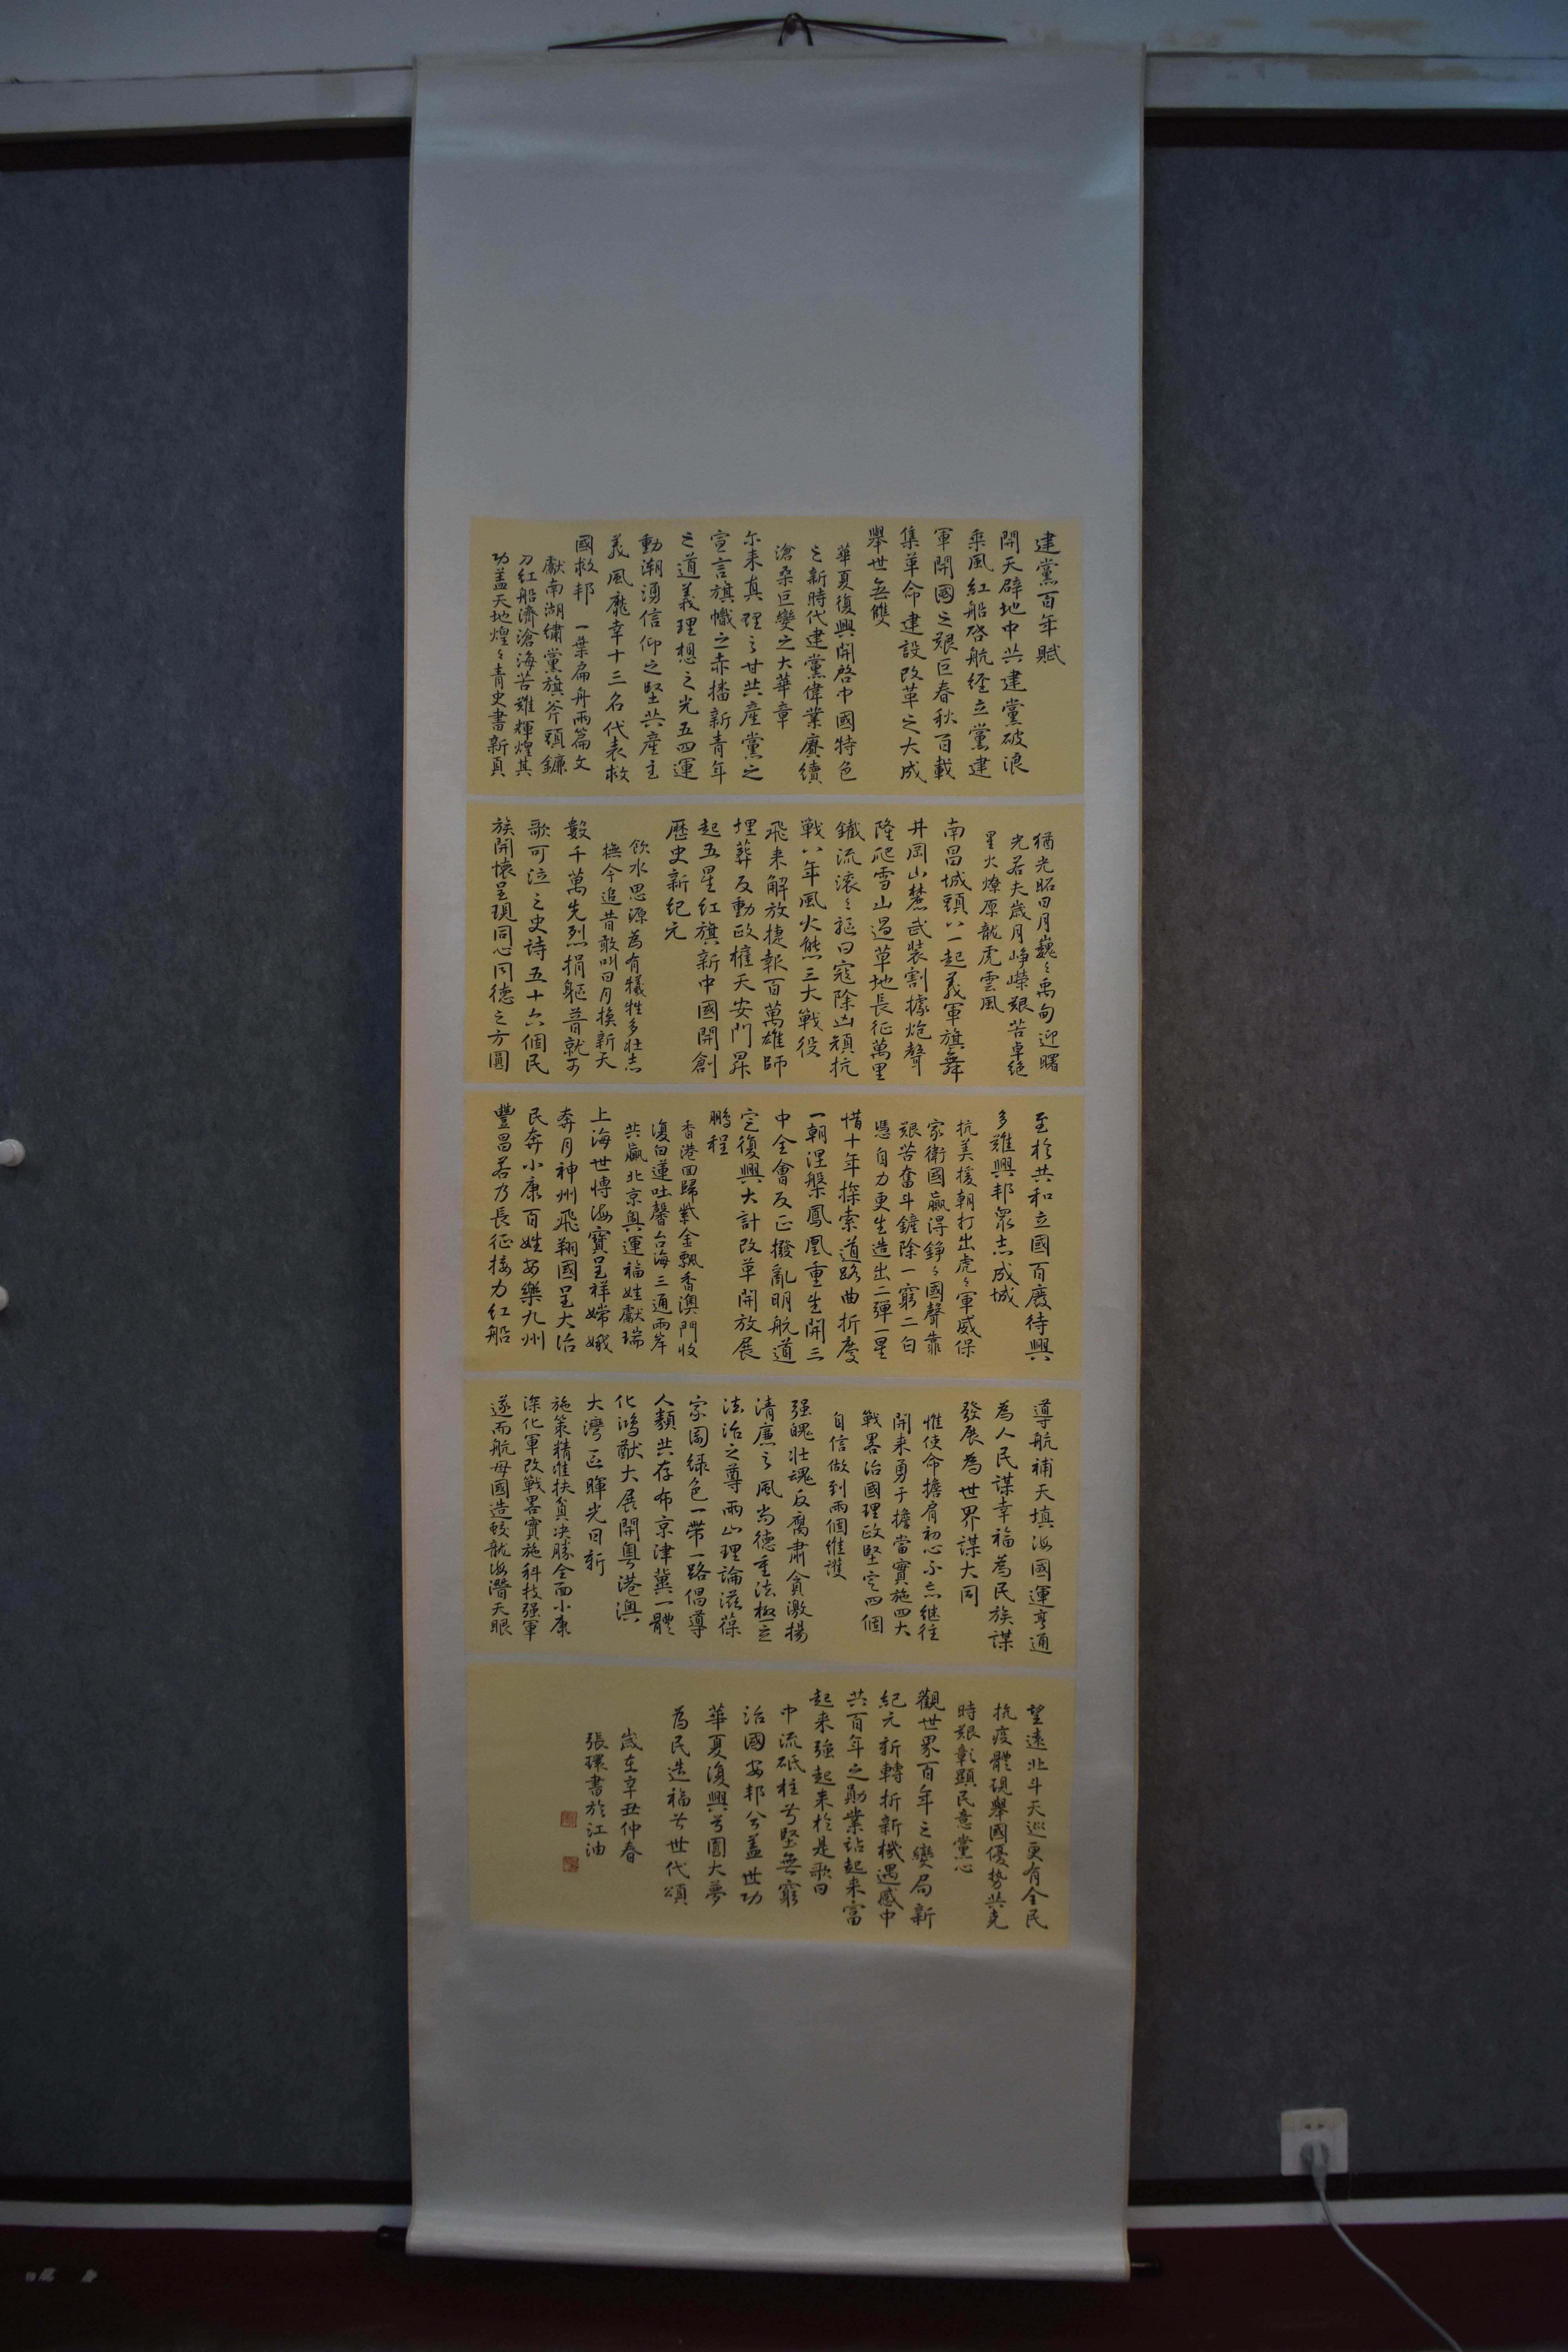 建黨百年賦
開天辟地中共建黨破浪
乘風紅船啓航經立黨建
軍開國之艱巨春秋百載
集革命建設改革之大成
舉世無雙
華夏復興開啓中國特色
之新時代建黨偉業賡續
滄桑巨變之大華章
尔来真理之甘共產黨之
宣言旗幟之赤播新青年
之道義理想之光五四運
動潮湧信仰之堅共產主
義風靡幸十三名代表救
國救邦一葉扁舟兩篇文
獻南湖繡黨旗斧頭鐮
刀紅船濟滄海苦難輝煌其
功蓋天地煌々青史書新頁
猶光昭日月巍々禹甸迎曙
光若夫歲月崢嶸艱苦卓絕
星火燎原龍虎雲風
南昌城頭八一起義軍旗舞
井岡山麓武裝割據炮聲
隆爬雪山過草地長征萬里
鐵流滚々驅日寇除凶頑抗
戰八年風火熊三大戰役
飛来解放捷報百萬雄師
埋葬反動政權天安門昇
起五星紅旗新中國開創
歷史新紀元
飲水思源為有犧牲多壯志
撫今追昔敢叫日月換新天
數千萬先烈捐軀普就可
歌可泣之史詩五十六個民
族開懷呈現同心同德之方圓
至於共和立國百廢待興
多難興邦衆志成城
抗美援朝打出虎々軍威保
家衛國贏得錚々國聲靠
艱苦奮斗鏟除一窮二白
憑自力更生造出二彈一星
惜十年探索道路曲折度
一朝涅槃鳳凰重生開三
中全會反正撥亂明航道
定復興大計改革開放展
鵬程
香港回歸紫金飄香澳門收
復白蓮吐馨台海三通兩岸
共贏北京奧運福娃獻瑞
上海世博海寶呈祥嫦娥
奔月神州飛翔國呈大治
民奔小康百姓安樂九州
豐昌若乃長征接力紅船
導航補天填海國運亨通
為人民謀幸福為民族謀
發展為世界謀大同
惟使命擔肩初心不忘继往
開来勇于擔當實施四大
戰畧治國理政堅定四個
自信做到兩個維護
强魄壯魂反腐肅貪激揚
清廉之風尚德重法樹立
法治之尊兩山理論滋葆
家園绿色一帶一路倡導
人類共存布京津冀一體
化鴻猷大展開粵港澳
大灣區暉光日新
施策精准扶貧决勝全面小康
深化軍改戰畧實施科技强軍
遂而航母國造蛟龍海潛天眼
望遠北斗天巡更有全民
抗疫體現舉國優势共克
時艱彰顯民意黨心
觀世界百年之變局新
紀元新轉折新機遇感中
共百年之勛業站起来富
起来强起来於是歌曰
中流砥柱兮堅無窮
治國安邦兮蓋世功
華夏復興兮圓大夢
為民造福兮世代頌
歲在辛丑仲春
張環書於江油